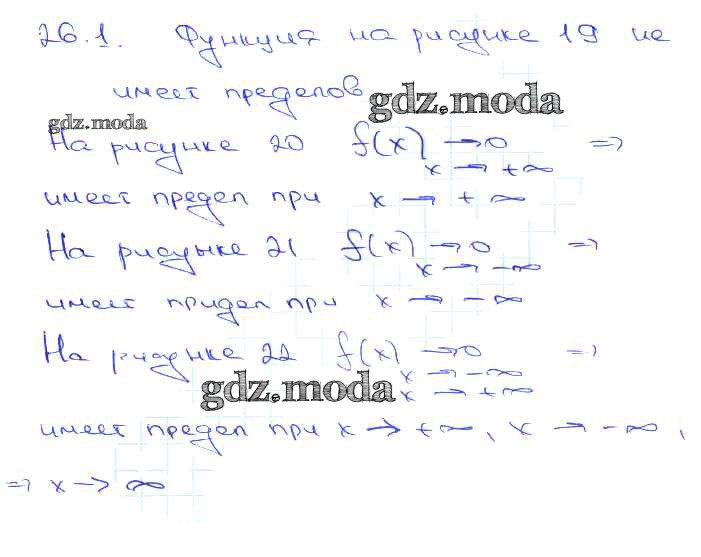 26.1. Функция на рисунке 19 не
имеет пределов
gdz.moda
gdz.moda
На рисунке 20 f(x) → 0 =>
x → +∞
имеет предел при x → +∞
На рисунке 21 f(x) → 0 =>
x → -∞
имеет придел при x → -∞
На рисунке 22 f(x) → 0 =>
x → -∞
gdz.moda x → +∞
имеет предел при x → +∞, x → -∞,
=> x → ∞